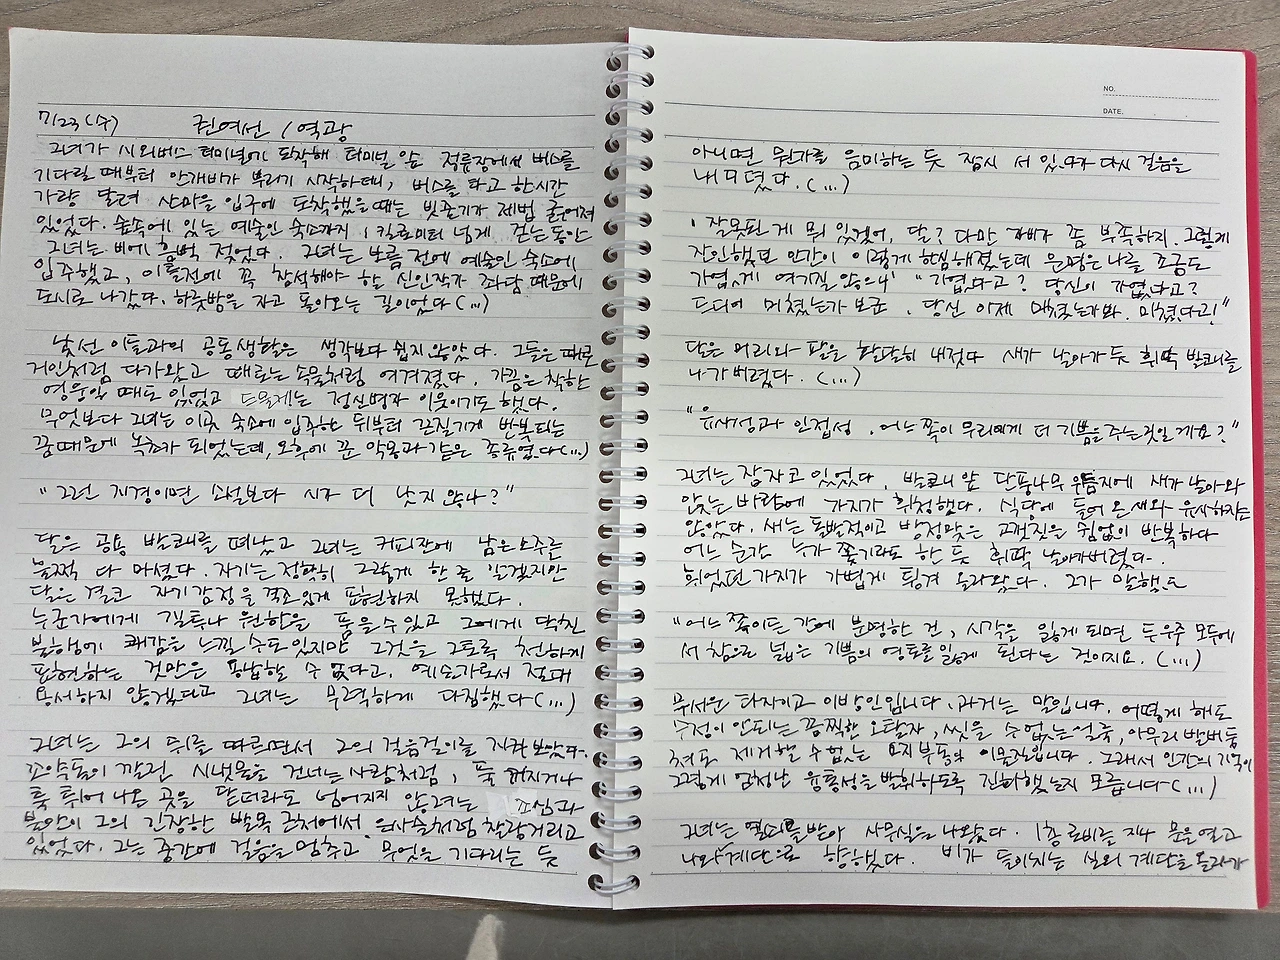 7/23(수) 권여선 / 역광
그녀가 시외버스 터미널에 도착해 터미널 앞 정류장에서 버스를
기다릴 때부터 안개비가 뿌리기 시작하더니, 버스를 타고 한시간
가량 달려 산마을 입구에 도착했을 때는 빗줄기가 제법 굵어져
있었다. 숲속에 있는 예술인 숙소까지 1킬로미터 넘게 걷는 동안
그녀는 비에 흠뻑 젖었다. 그녀는 보름 전에 예술인 숙소에
입주했고, 이틀전에 꼭 참석해야 할 신인작가 좌담 때문에
도시로 나갔다. 하룻밤을 자고 돌아오는 길이었다(...)
낯선 이들과의 공동생활은 생각보다 쉽지 않았다. 그들은 때로
거인처럼 다가왔고 때로는 속물처럼 여겨졌다. 가끔은 착한
영웅일 때도 있었고 드물게는 정신병자 이웃이기도 했다.
무엇보다 그녀는 이곳 숙소에 입주한 뒤부터 끈질기게 반복되는
꿈때문에 녹초가 되었는데, 오후에 꾼 악몽과 같은 종류였다(...)
"그런 지경이면 소설보다 시가 더 낫지 않나?"
달은 공용 발코니를 떠났고 그녀는 커피잔에 남은 소주를
홀짝 다 마셨다. 자기는 정확히 그렇게 한 줄 알겠지만
달은 결코 자기 감정을 격조있게 표현하지 못했다.
누군가에게 질투나 원한을 품을 수 있고 그에게 닥친
불행에 쾌감을 느낄 수도 있지만 그것을 그토록 천하게
표현하는 것만은 용납할 수 없다고, 예술가로서 절대
용서하지 않겠다고 그녀는 무력하게 다짐했다(...)
그녀는 그의 뒤를 따르면서 그의 걸음걸이를 지켜보았다.
조약돌이 깔린 시냇물을 건너는 사람처럼, 푹 꺼지거나
툭 튀어나온 곳을 딛더라도 넘어지지 않으려는 조심과
불안이 그의 긴장한 발목 근처에서 은사슬처럼 찰랑거리고
있었다. 그는 중간에 걸음을 멈추고 무엇을 기다리는 듯
NO.
DATE.
아니면 뭔가를 음미하는 듯 잠시 서 있다가 다시 걸음을
내디뎠다.(...)
잘못된 게 뭐 있겠어, 달? 다만 자비가 좀 부족하지. 그렇게
잔인했던 인간이 이렇게 한심해졌는데 운명은 나를 조금도
가엾게 여기질 않으니" "가엾다고? 당신이 가엾다고?
드디어 미쳤는가 보군. 당신 이제 미쳤는가봐. 미쳤다고!"
달은 머리와 팔을 황당히 내젓다 새가 날아가듯 휘딱 발코니를
나가버렸다. (...)
"유사성과 인접성. 어느 쪽이 우리에게 더 기쁨을 주는 것일까요?"
그녀는 잠자코 있었다. 발코니 앞 단풍나무 우듬지에 새가 날아와
앉는 바람에 가지가 휘청했다. 식당에 들어온 새와 유사하지는
않았다. 새는 돌발적이고 방정맞은 고갯짓을 쉼없이 반복하다
어느 순간 누가 쫓기라도 한 듯 휘딱 날아가버렸다.
휘었던 가지가 가볍게 튕겨 올라왔다. 그가 말했다
"어느 쪽이든 간에 분명한 건, 시각을 잃게 되면 두 우주 모두에
서 참으로 넓은 기쁨의 영토를 잃게 된다는 것이지요. (...)
무서운 타자이고 이방인입니다. 과거는 말입니다. 어떻게 해도
수정이 안되는 끔찍한 오탈자, 씻을 수 없는 얼룩, 아무리 발버둥
쳐도 제거할 수 없는 요지부동의 이물질입니다. 그래서 인간의 기억이
그렇게 엄청난 융통성을 발휘하도록 진화했는지 모릅니다(...)
그녀는 열쇠를 받아 사무실을 나왔다. 1층 로비를 지나 문을 열고
나와 계단으로 향했다. 비가 들이치는 실외 계단을 올라가